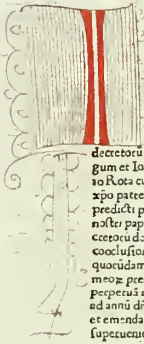 I
decretorū
gum et Io
io Rota cu
xp̄o patre
predicti p
nostri pap
cretorū do
coclusion
quorūdam
meoꝝ pre
perpetuā
ad annū dn̄
et emenda
superuenie